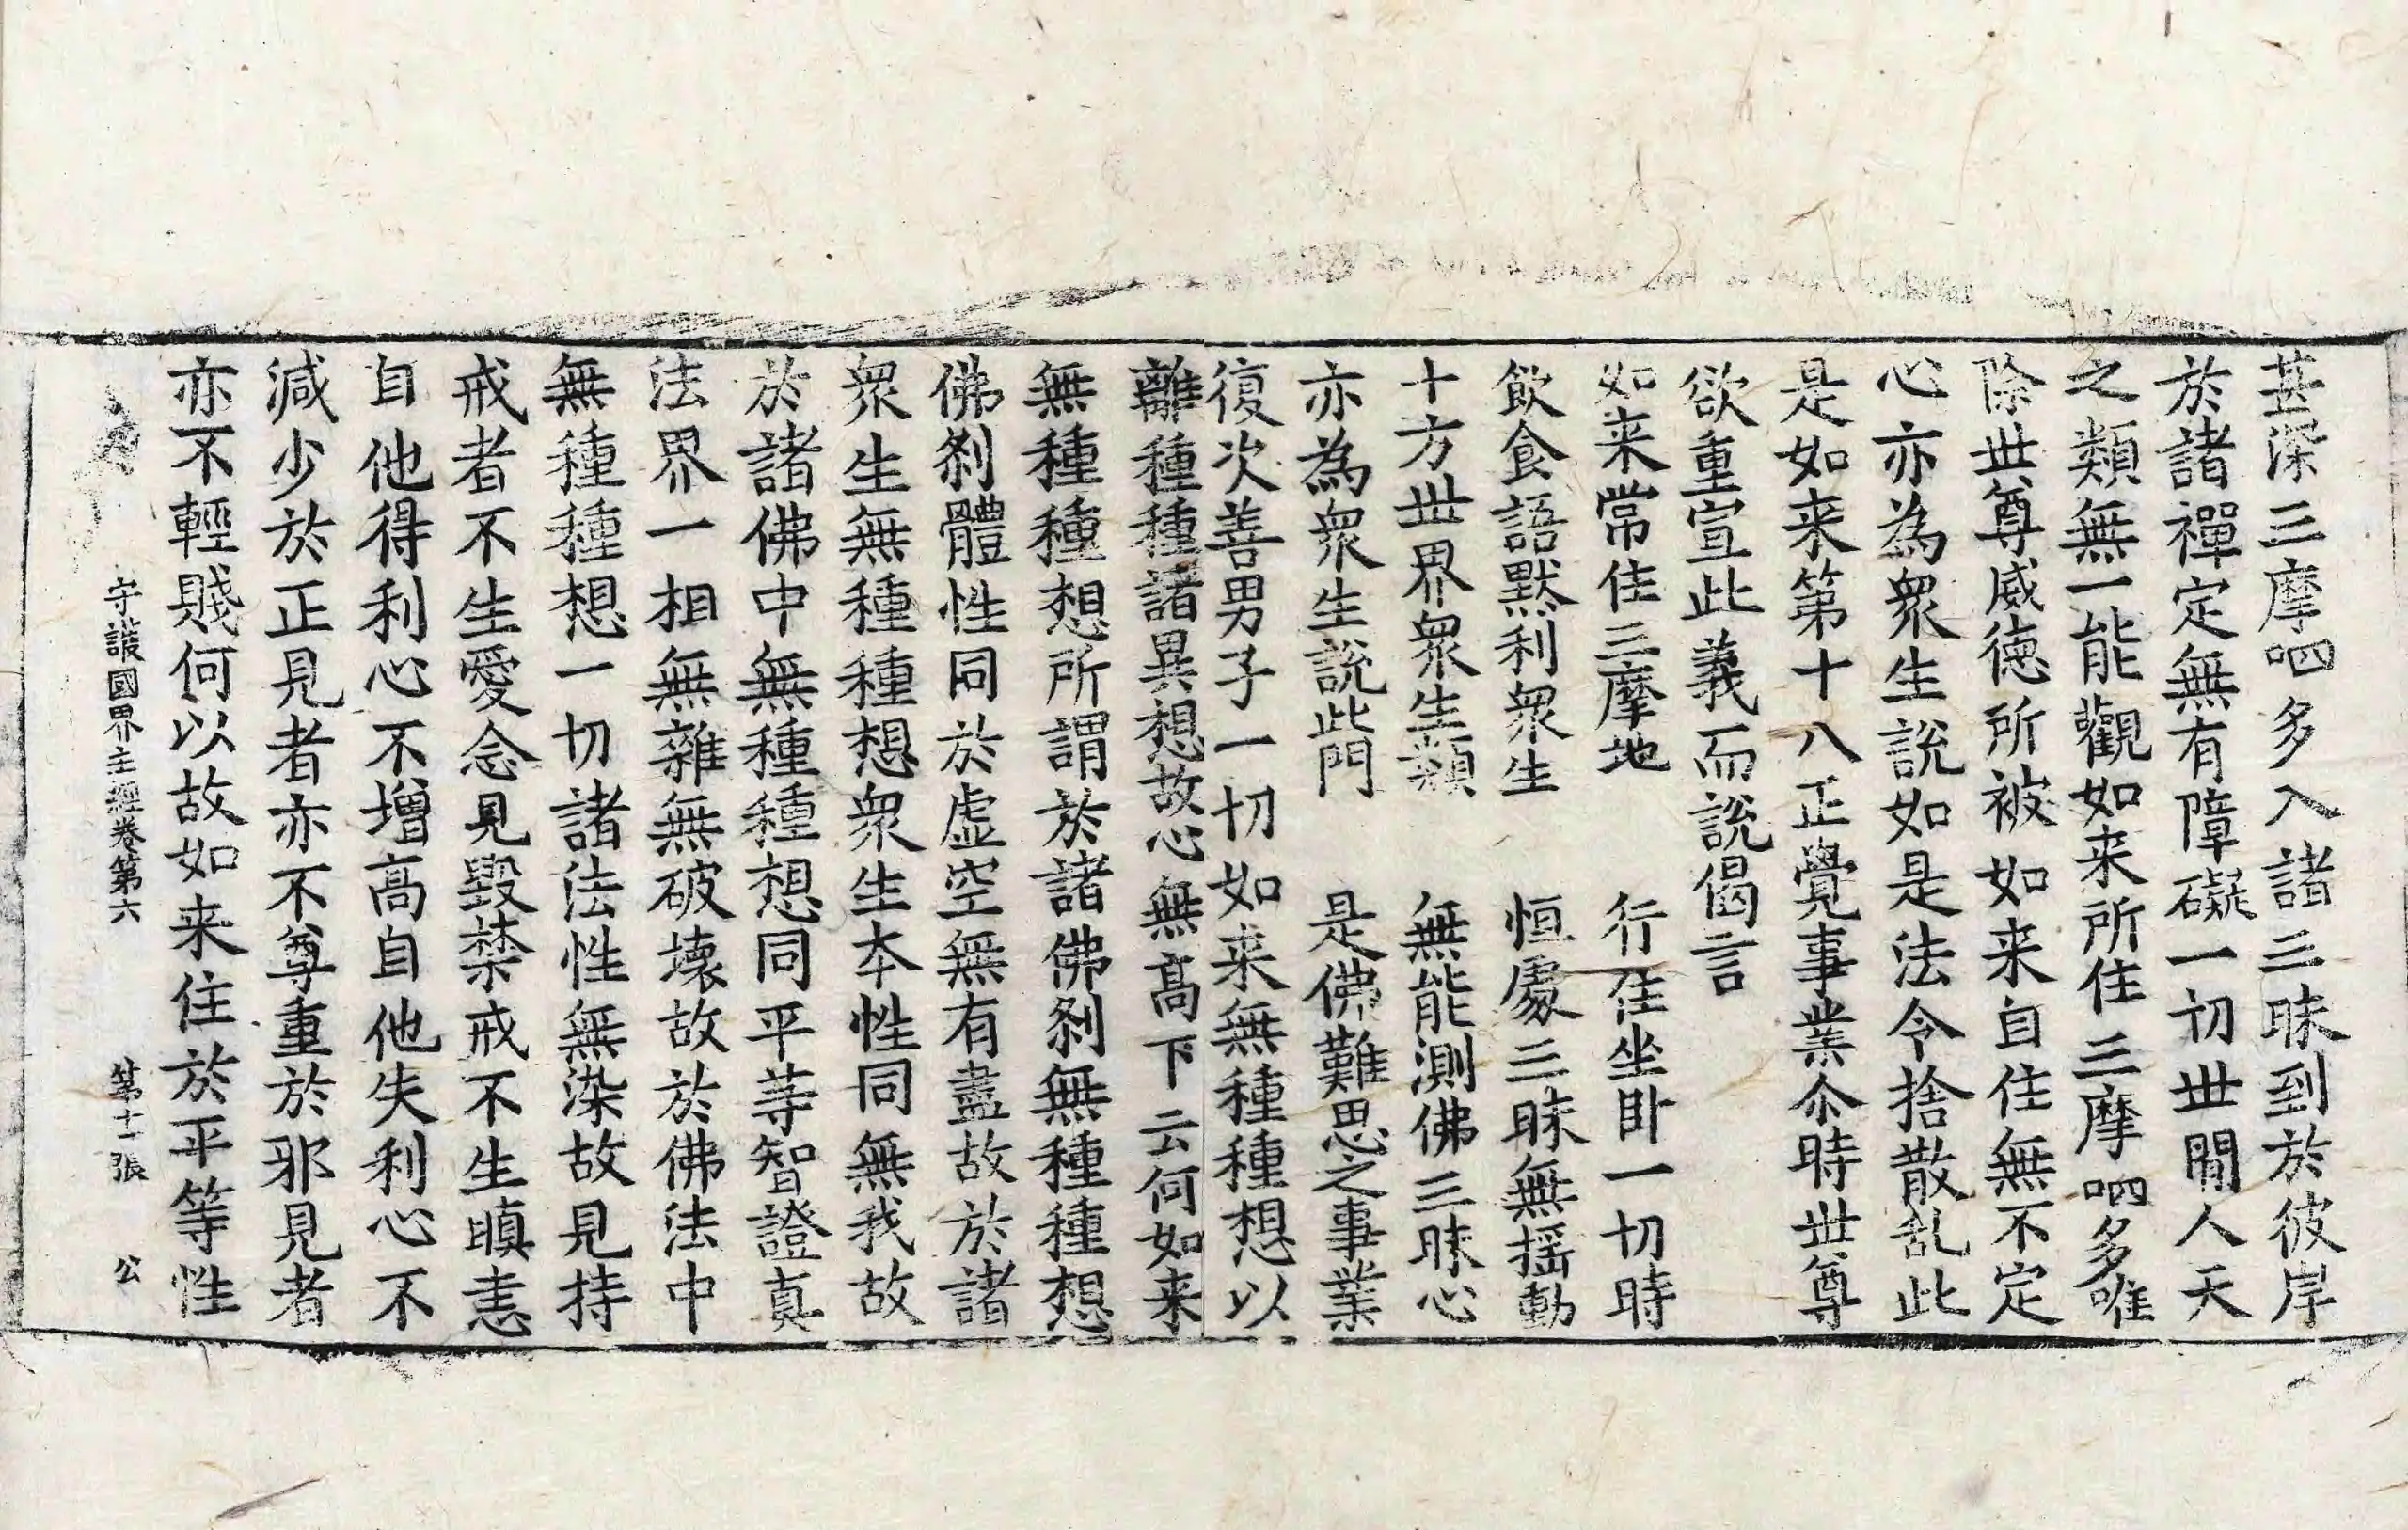 甚深三摩呬多入諸三昧到於彼岸
於諸禪定無有障礙一切世閒人天
之類無一能觀如来所住三摩呬多唯
除世尊威德所被如来自住無不定
心亦為衆生說如是法令捨散乱此
是如来第十八正覺事業尒時世尊
欲重宣此義而說偈言
如来常住三摩地　行住坐卧一切時
飲食語默利衆生　恒處三昧無揺動
十方世界衆生類　無能測佛三昧心
亦為衆生說此門　是佛難思之事業
復次善男子一切如来無種種想以
離種種諸異想故心無高下云何如来
無種種想所謂於諸佛刹無種種想
佛刹體性同於虛空無有盡故於諸
衆生無種種想衆生本性同無我故
於諸佛中無種種想同平等智證真
法界一相無雜無破壞故於佛法中
無種種想一切諸法性無染故見持
戒者不生愛念見毀禁戒不生瞋恚
自他得利心不增高自他失利心不
減少於正見者亦不尊重於邪見者
亦不輕賤何以故如来住於平等性
守護國界主經卷第六　第十一張　公